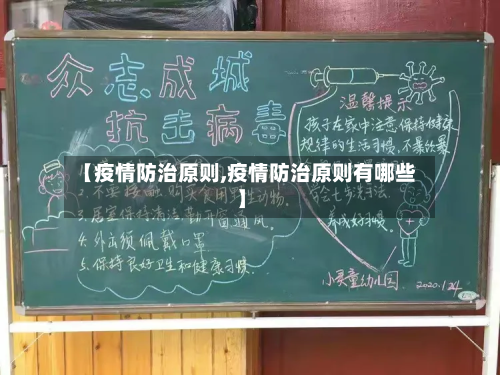 众志成城
抗击病毒
【疫情防治原则,疫情防治原则有哪些
】
2.不要接触、购买食用野生动物.
3.居室保持清洁,勤开窗通风.
4.外出须佩戴口罩
5.保持良好卫生和健康习惯.
温馨提示
孩子在家中注意保持健康
规律的生活习惯,不暴饮暴
学会七步洗手法.
养成好习惯.
小灵童幼儿园
2020.1.24